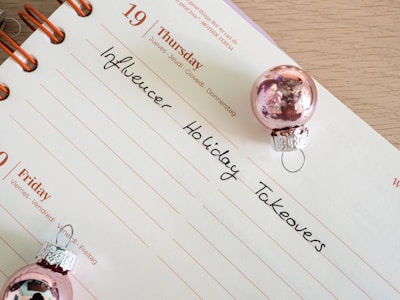 19
Thursday
Jeudi · Giovedi · Donnerstag
Influencer Holiday Takeovers
Friday
Viernes · Vendredi · Venerdì · Freitag